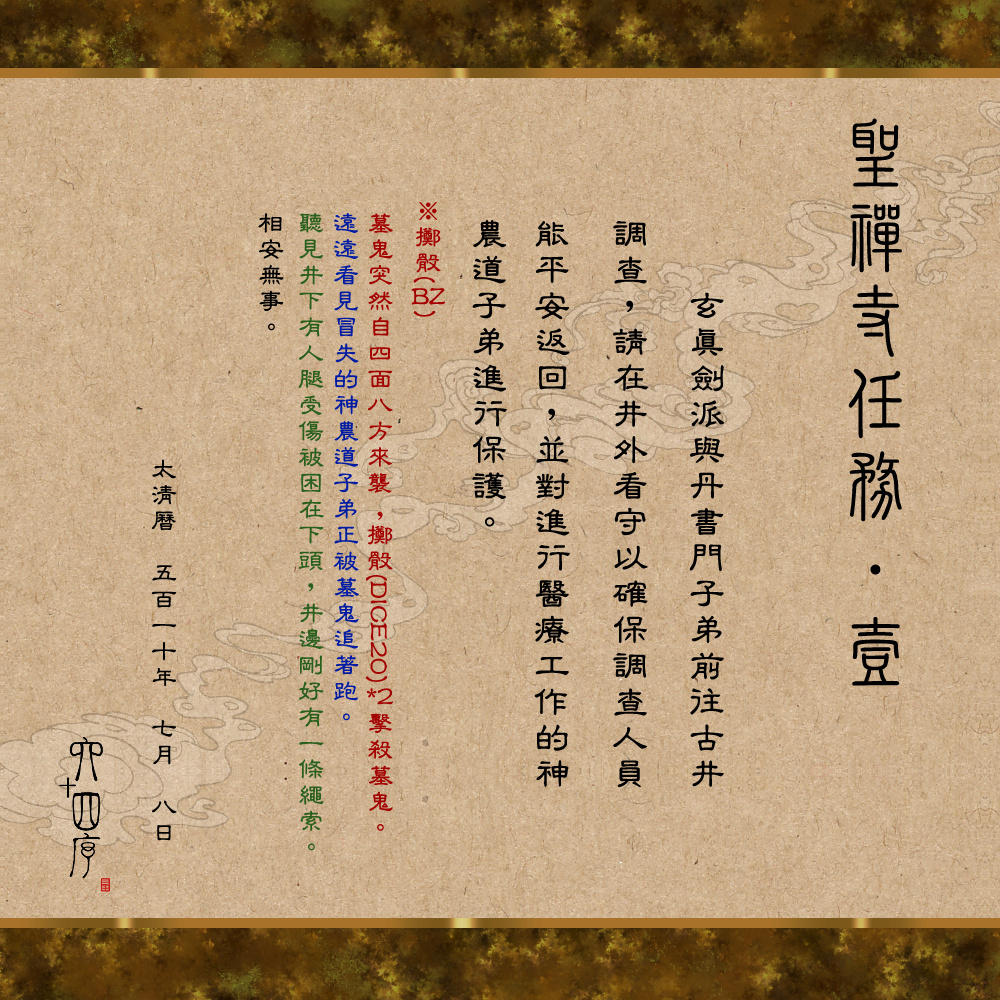 聖禪寺任務・壹
玄眞劍派與丹書門子弟前往古井
調查，請在井外看守以確保調查人員
能平安返回，並對進行醫療工作的神
農道子弟進行保護。
※擲骰(BZ)
墓鬼突然自四面八方來襲，擲骰(DICE20)*2擊殺墓鬼。
遠遠看見冒失的神農道子弟正被墓鬼追著跑。
聽見井下有人腿受傷被困在下頭，井邊剛好有一條繩索。
相安無事。
太清曆　五百一十年　七月　八日
六十四序